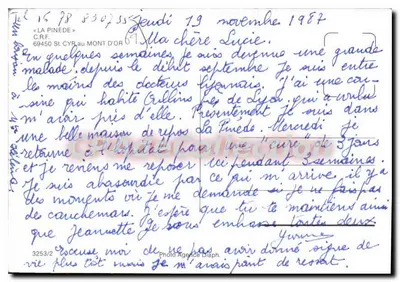 Jeudi 19 novembre 1987
« LA PINÈDE »
C.R.F.
69450 St. CYR au MONT D'OR
Ma chère Lucie.
En quelques semaines, je suis devenue une grande
malade, depuis le début septembre je suis entre
les mains des docteurs lyonnais. J'ai une cou-
sine qui habite Oullins près de Lyon, qui a voulu
m'avoir près d'elle. Présentement je suis dans
une belle maison de repos La Pinède. Mercredi je
retourne à l'hôpital pour une "cure" de 3 jours
et je reviens me reposer ici pendant 3 semaines.
Je suis abasourdie par ce qui m'arrive, il y a
des moments où je me demande si je ne fais pas
des cauchemars. J'espère que tu te maintiens ainsi
que Jeannette. Je vous embrasse toutes deux
Yvonne
3253/2
Photo Agence Diaph.
Excuse-moi de ne pas avoir donné signe de
vie plus tôt mais je m'avais point de ressort.